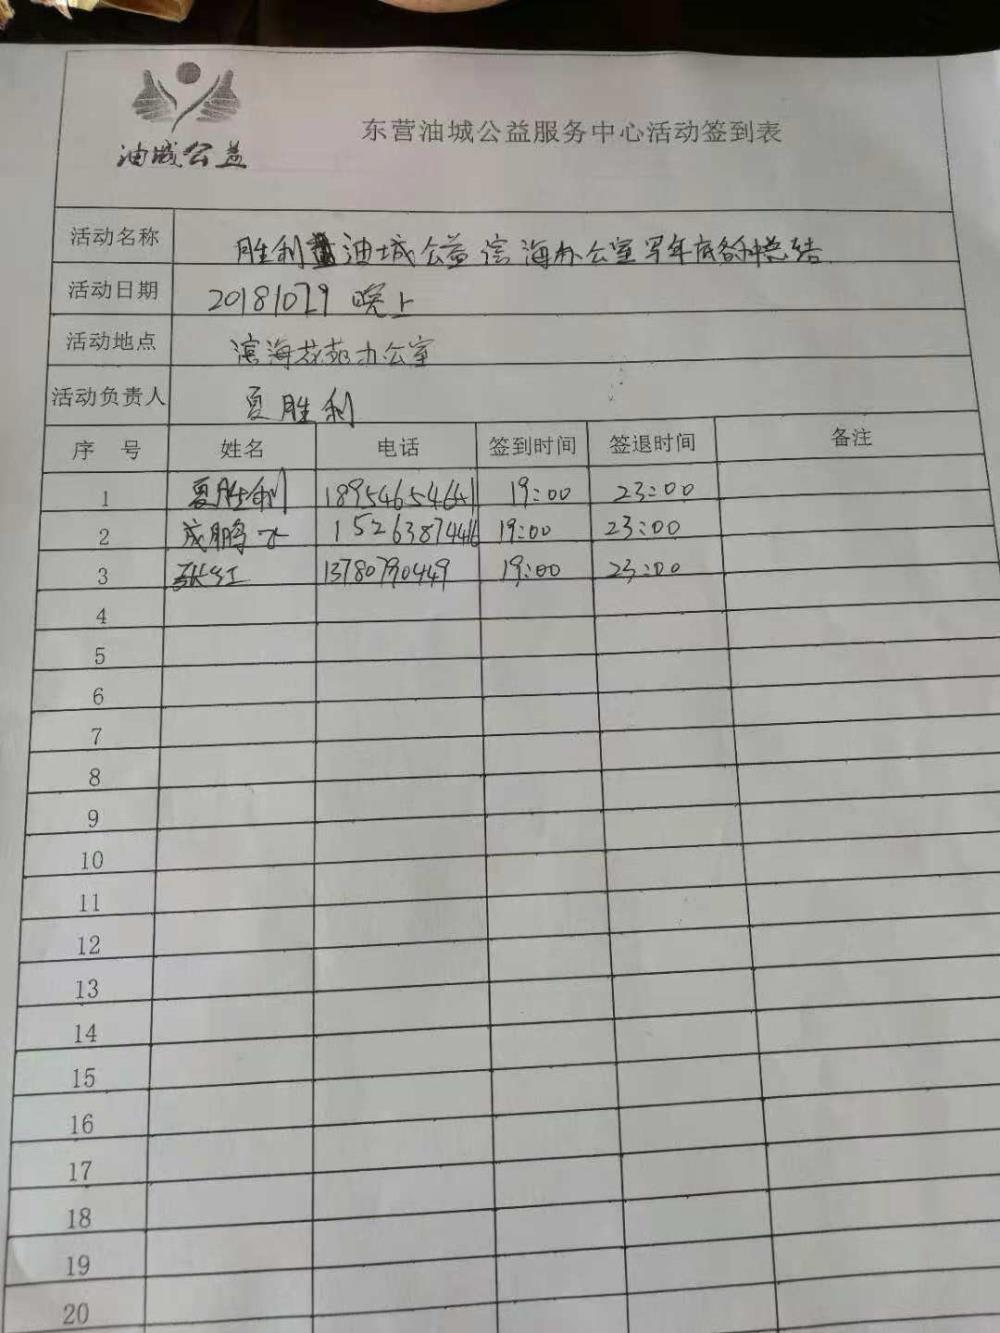 油城公益
东营油城公益服务中心活动签到表
活动名称 胜利油城公益滨海办公室写年底各种总结
活动日期 20181029 晚上
活动地点 滨海花苑办公室
活动负责人 夏胜利
序号 姓名 电话 签到时间 签退时间 备注
1 夏胜利 18954654641 19:00 23:00
2 成鹏飞 15263874446 19:00 23:00
3 张红 13780790449 19:00 23:00
4
5
6
7
8
9
10
11
12
13
14
15
16
17
18
19
20